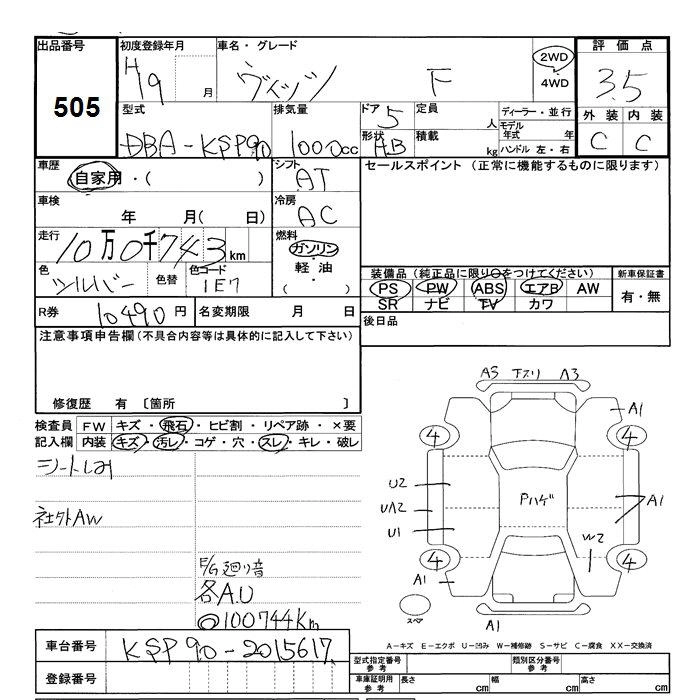 出品番号
505
初度登録年月
H19 月
車名・グレード
ヴィッツ F
2WD
4WD
評価点
3.5
外装 内装
C C
型式
DBA-KSP90
排気量
1000cc
ドア 5
形状 HB
定員 人
積載 kg
ディーラー・並行
モデル年式 年
ハンドル 左・右
車歴
自家用・( )
シフト
AT
セールスポイント (正常に機能するものに限ります)
車検
年 月( 日)
冷房
AC
走行
10万0千743km
燃料
ガソリン
軽油
( )
色
シルバー
色替
色コード
1E7
装備品(純正品に限り○をつけてください)
PS PW ABS エアB AW
SR ナビ TV カワ
新車保証書
有・無
R券 10490円
名変期限 月 日
後日品
注意事項申告欄(不具合内容等は具体的に記入して下さい)
修復歴 有 〔箇所 〕
検査員記入欄
FW キズ・飛石・ヒビ割・リペア跡・×要
内装 キズ・汚レ・コゲ・穴・スレ・キレ・破レ
シートしみ
社外AW
E/G廻り音
各A.U
◎100744Km
A3 下スリ A3
A1
4 4
U2
UA2
U1
Pハゲ
A1
W2
4 4
A1
スペア
A1
A-キズ E-エクボ U-凹み W-補修跡 S-サビ C-腐食 XX-交換済
車台番号
KSP90-2015617
登録番号
型式指定番号参考
類別区分番号参考
車庫証明用参考
長さ cm 幅 cm 高さ cm